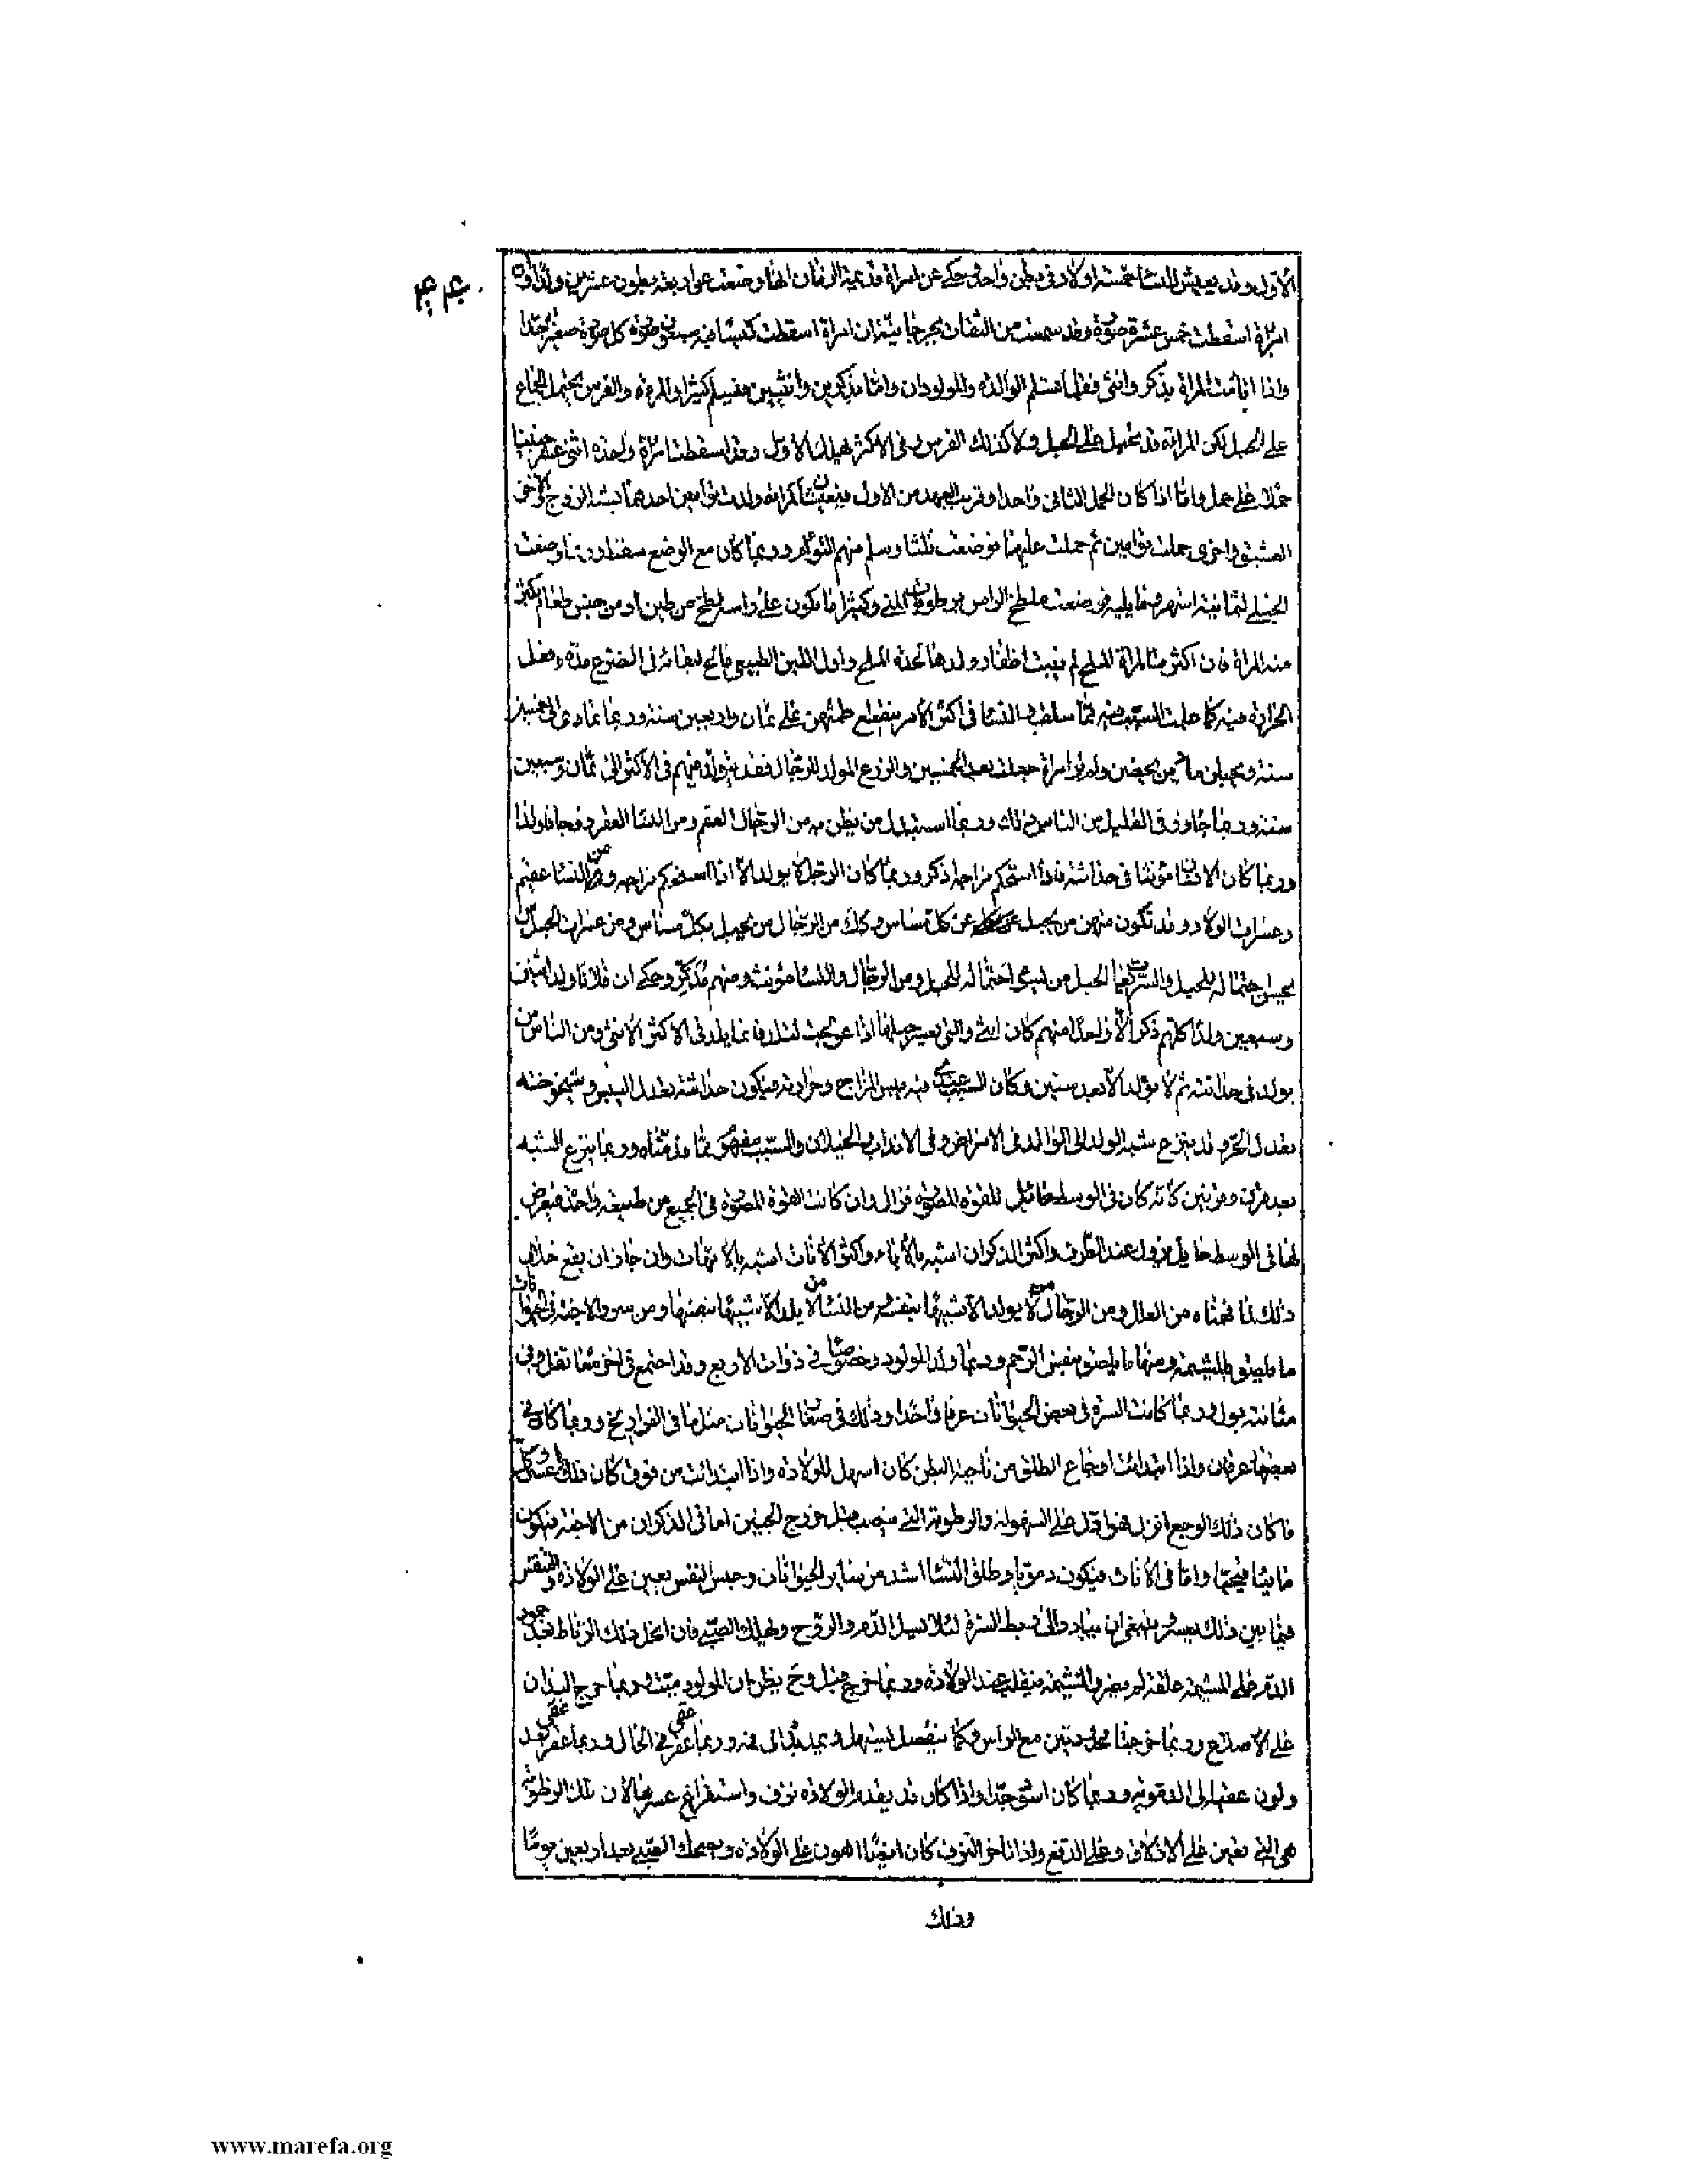 الأول وقد يعيش للنسا خمسة اولاد فى بطن واحد وحكى عن امراة قديمة الزمان انها وضعت على اربعة بطون عشرين ولدا وان
امراة اسقطت خمس عشرة صورة وقد سمعت من الثقات بجرجان ان امراة اسقطت كيسا فيه سبعون صورة كل صورة صغيرة جدا
واذا اتأمت المراة بذكر وانثى فقلما تسلم الوالدة والمولودان واما بذكرين وانثيين فتسلم كثيرا والمراة والفرس يحتمل الجماع
على الحبل لكن المراة قد تحبل على الحبل ولا كذلك الفرس وفى الاكثر يهلك الاول وقد اسقطت امراة واحدة اثنى عشر جنينا
حملا على حمل واما اذا كان الحمل الثانى واحدا وقريب العهد من الاول فيعيشان كامراة ولدت توأمين احدهما يشبه الزوج والآخر
العشيق واخرى حملت توامين ثم حملت عليهما فوضعت ثلثا وسلم منهم التوأم وربما كان مع الوضع سقط وربما وضعت
الحبلى لثمانية اشهر فما يليه فوضعت ملطخ الراس برطوبات المنى وكثيرا ما يكون على راسه لطخ من طين او من جنس طعام يكثر
منه المراة فان اكثرت المراة الملح لم ينبت اظفار ولدها لحدة الملح واول اللبن الطبيعى مالح لبقائه فى الضرع مدة وفعل
الحرارة فيه كما علمت السبب فيه مما سلف والنسا فى اكثر الأمر ينقطع طمثهن على ثمان واربعين سنة وربما تمادى الى خمسين
سنة ويحبلن ما دمن يحضن ولم تر امراة حبلت بعد الخمسين والزرع المولد للرجال فقد يتولد فيهم فى الأكثر الى ثمان وسبعين
سنة وربما جاوز فى القليل من الناس ذلك وربما استبدل من يظن به من الرجال العقم ومن النسا العقر زوجا فولدا
وربما كان الانسان مؤنثا فى حداثته فاذا استحكم مزاجه اذكر وربما كان الرجل لا يولد الا اذا استحكم مزاجه ومن النسا عقيم
وعسرات الولاد وقد تكون منهن من يحبل عن كل مساس وكذلك من الرجال من يحبل بكل مساس ومن عسرات الحبل من
يحسن احتماله للحبل والسريعات الحبل من يسيء احتماله للحبل ومن الرجال والنسا مؤنث ومنهم مذكر وحكى ان فلانا ولد اثنين
وسبعين ولدا كلهم ذكر الا واحدا منهم كان انثى والتى يعسر حبلها اذا عولجت لتلد فانما يلد فى الاكثر الانثى ومن الناس من
يولد فى حداثته ثم لا يولد الا بعد سنين وكان السبب عندى فيه يبس المزاج وحرارته فيكون حداثته تعدل اليبس وشيخوخته
تعدل الحر وقد ينزع شبه الولد الى الوالد فى الامراض وفى الانداب والخيلان والسبب مفهوم مما قدمناه وربما ينزع الشبه
بعد مرة ومرتين كانه كان فى الوسط حائل للقوة المصورة فزال وان كانت القوة المصورة فى الجميع من طبيعة واحدة فيعرض
لها فى الوسط حايل يزول عند الطرف واكثر الذكران اشبه بالأباء واكثر الاناث اشبه بالامهات وان جاز ان يقع خلاف
ذلك لما فهمناه من العلل ومن الرجال من لا يولد الا شبيها بنفسه ومن النسا من لا يلد الا شبيها بنفسها ومن سرر الاجنة فى الحيوانات
ما يلصق بالمشيمة ومنها ما يلصق بنفس الرحم وربما ولد المولود وخصوصا فى ذوات الاربع وقد اجتمع فى امعائه ثفل وفى
مثانته بول وربما كانت السرة فى بعض الحيوانات عرقا واحدا وذلك فى صغار الحيوانات مثل ما فى الفراريخ وربما كان فى
بعضها عرقان واذا ابتدأت اوجاع الطلق من ناحية البطن كان اسهل للولادة واذا ابتدأت من فوق كان ذلك اعسر وكل
ما كان ذلك الوجع انزل فهو ادل على السهولة والرطوبة التى تنصب قبل خروج الجنين اما فى الذكران من الاجنة فيكون
مائيا قيحيا واما فى الأناث فيكون دمويا وطلق النسا اشد من ساير الحيوانات وحبس النفس يعين على الولادة والتنفس
فيما بين ذلك يعسر وينبغى ان يبادر الى ضبط السرة لئلا يسيل الدم والروح ويهلك الصبى فان انحل ذلك الرباط بعد جمود
الدم على المشيمة علقة لم يضر والمشيمة ينقلب عند الولادة وربما خرج قبل وح يظن ان المولود ميت وربما خرج اليدان
على الأضلاع وربما خرجتا ممدودتين مع الراس وكما ينفصل يستهل ويمد يده الى فمه وربما عقى فى الحال وربما عقى بعد
ولون عقيه الى الدموية وربما كان اسود جدا واذا كان قد يقدم الولادة نزف واستفراغ عسر لان تلك الرطوبة
هى التى تعين على الازلاق وعلى الدفع واذا تاخر النزف كان ايضا اهون على الولادة ويضحك الصبى بعد اربعين يوما
وذلك
www.marefa.org